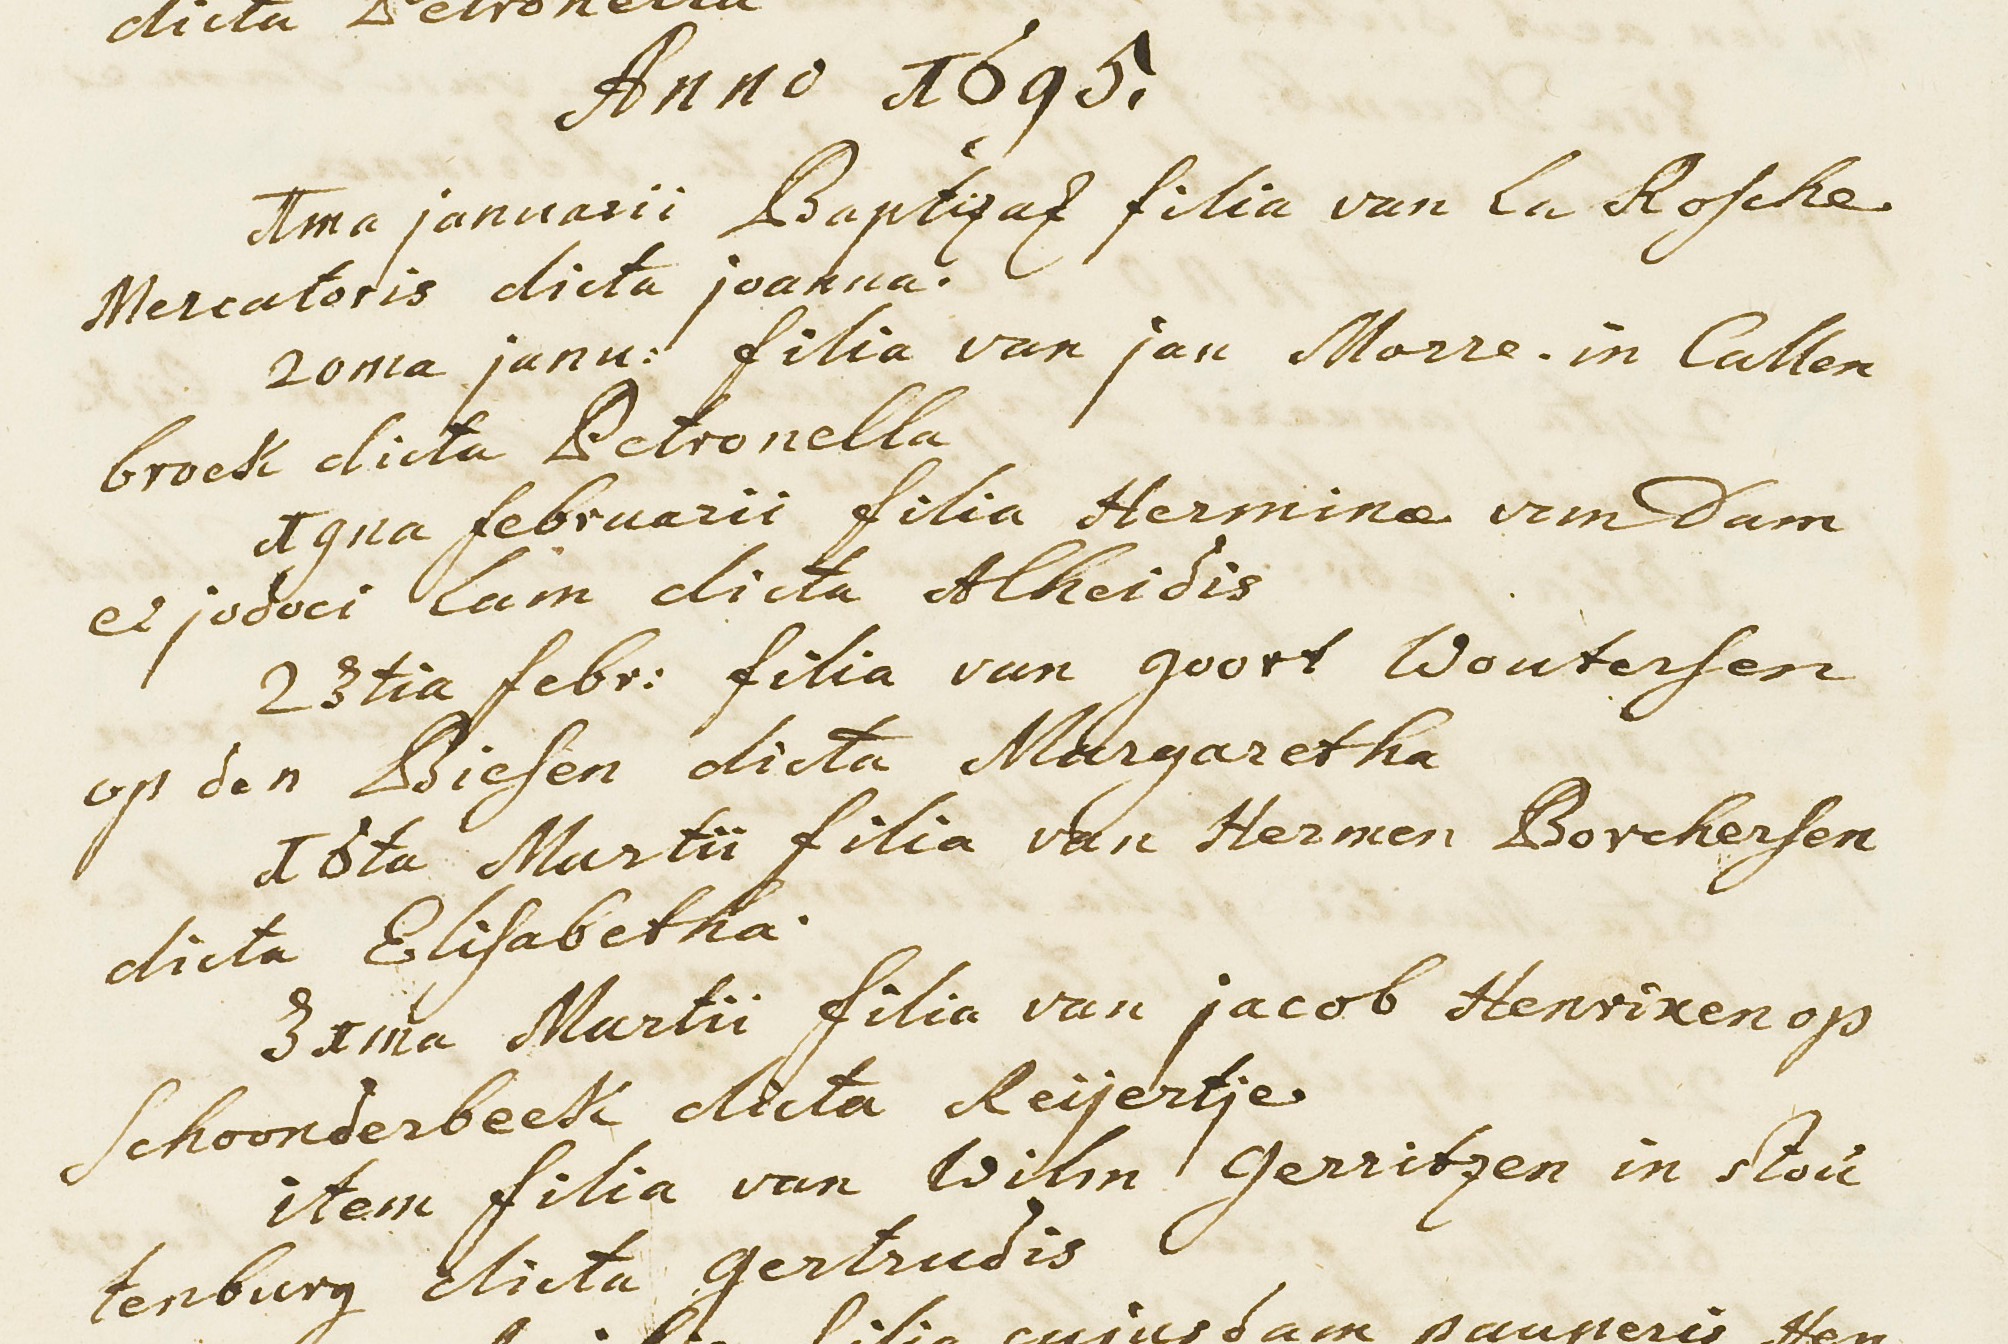 dicta Petronella
Anno 1695.
1ma januarii Baptizat filia van La Rosche
Mercatoris dicta joanna.
20ma janu: filia van jan Morre. in Callen
broek dicta Petronella
19na februarii filia Herminæ van Dam
et jodoci Lam dicta Alheidis
23tia febr: filia van goort Woutersen
op den Biesen dicta Margaretha
16ta Martii filia van Hermen Borchersen
dicta Elisabetha.
31ma Martii filia van jacob Henrixen op
Schoonderbeek dicta Reijertje
item filia van Wilm Gerritzen in stoú
tenburg dicta gertrudis
filia cujusdam pauperis Hen